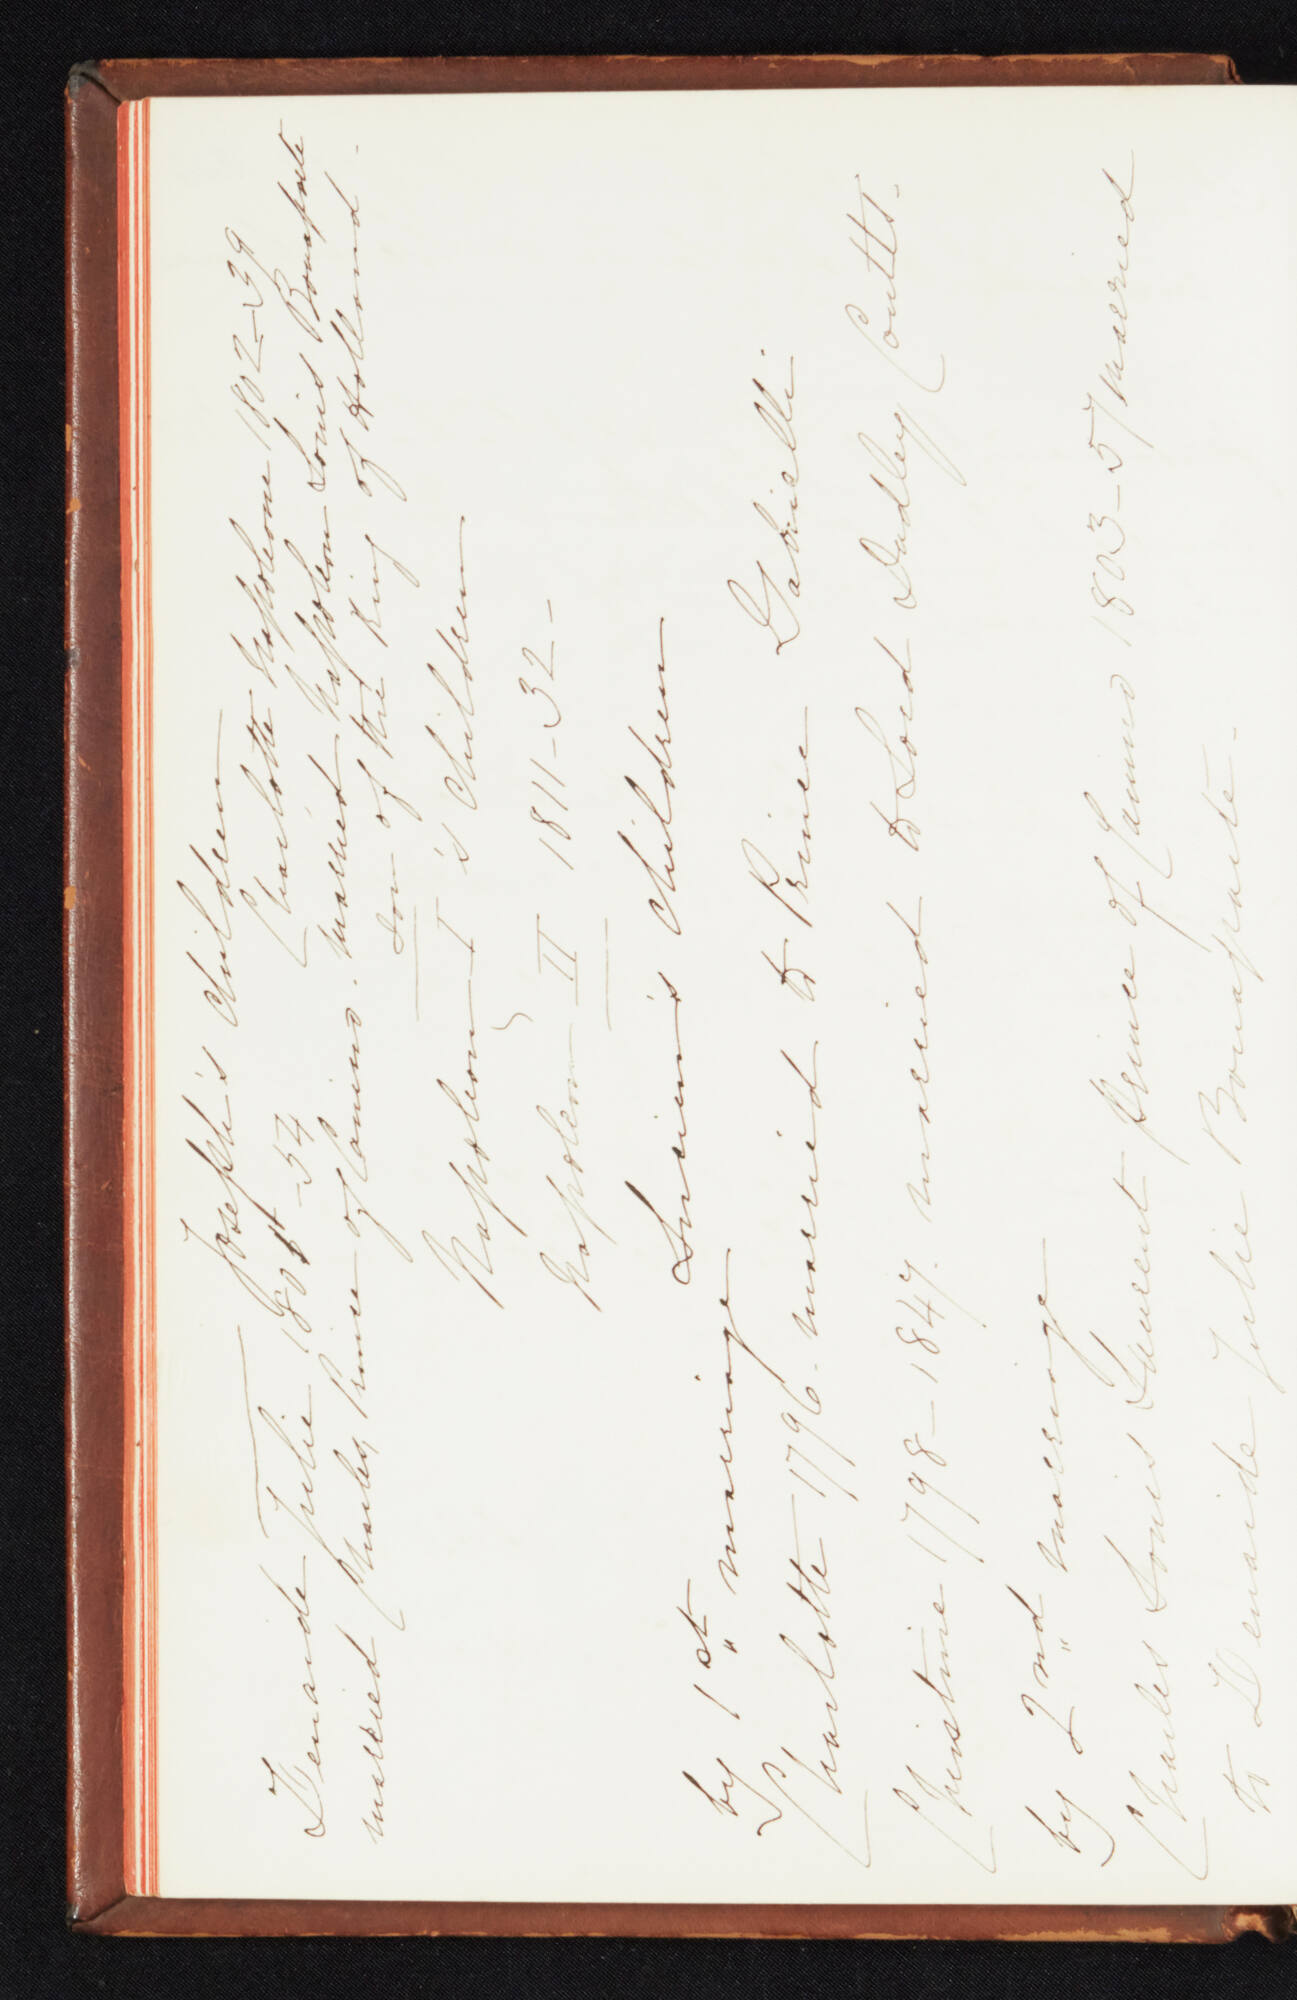 Joseph's children
Zenaide Julie 1801-54 Charlotte Napoleone 1802-39
married Charles, Prince of Canino. married Napoleon Louis Bonaparte
son of the King of Holland.
Napoleon I's children
Napoleon II 1811-32-
Lucien's children
by 1st marriage
Charlotte 1796. married to Prince Gabrielli.
Christine 1798-1847. married to Lord Dudley Coutts.
by 2nd marriage
Charles Louis Laurent Prince of Canino 1803-57 married
to Zenaide Julie Bonaparte.